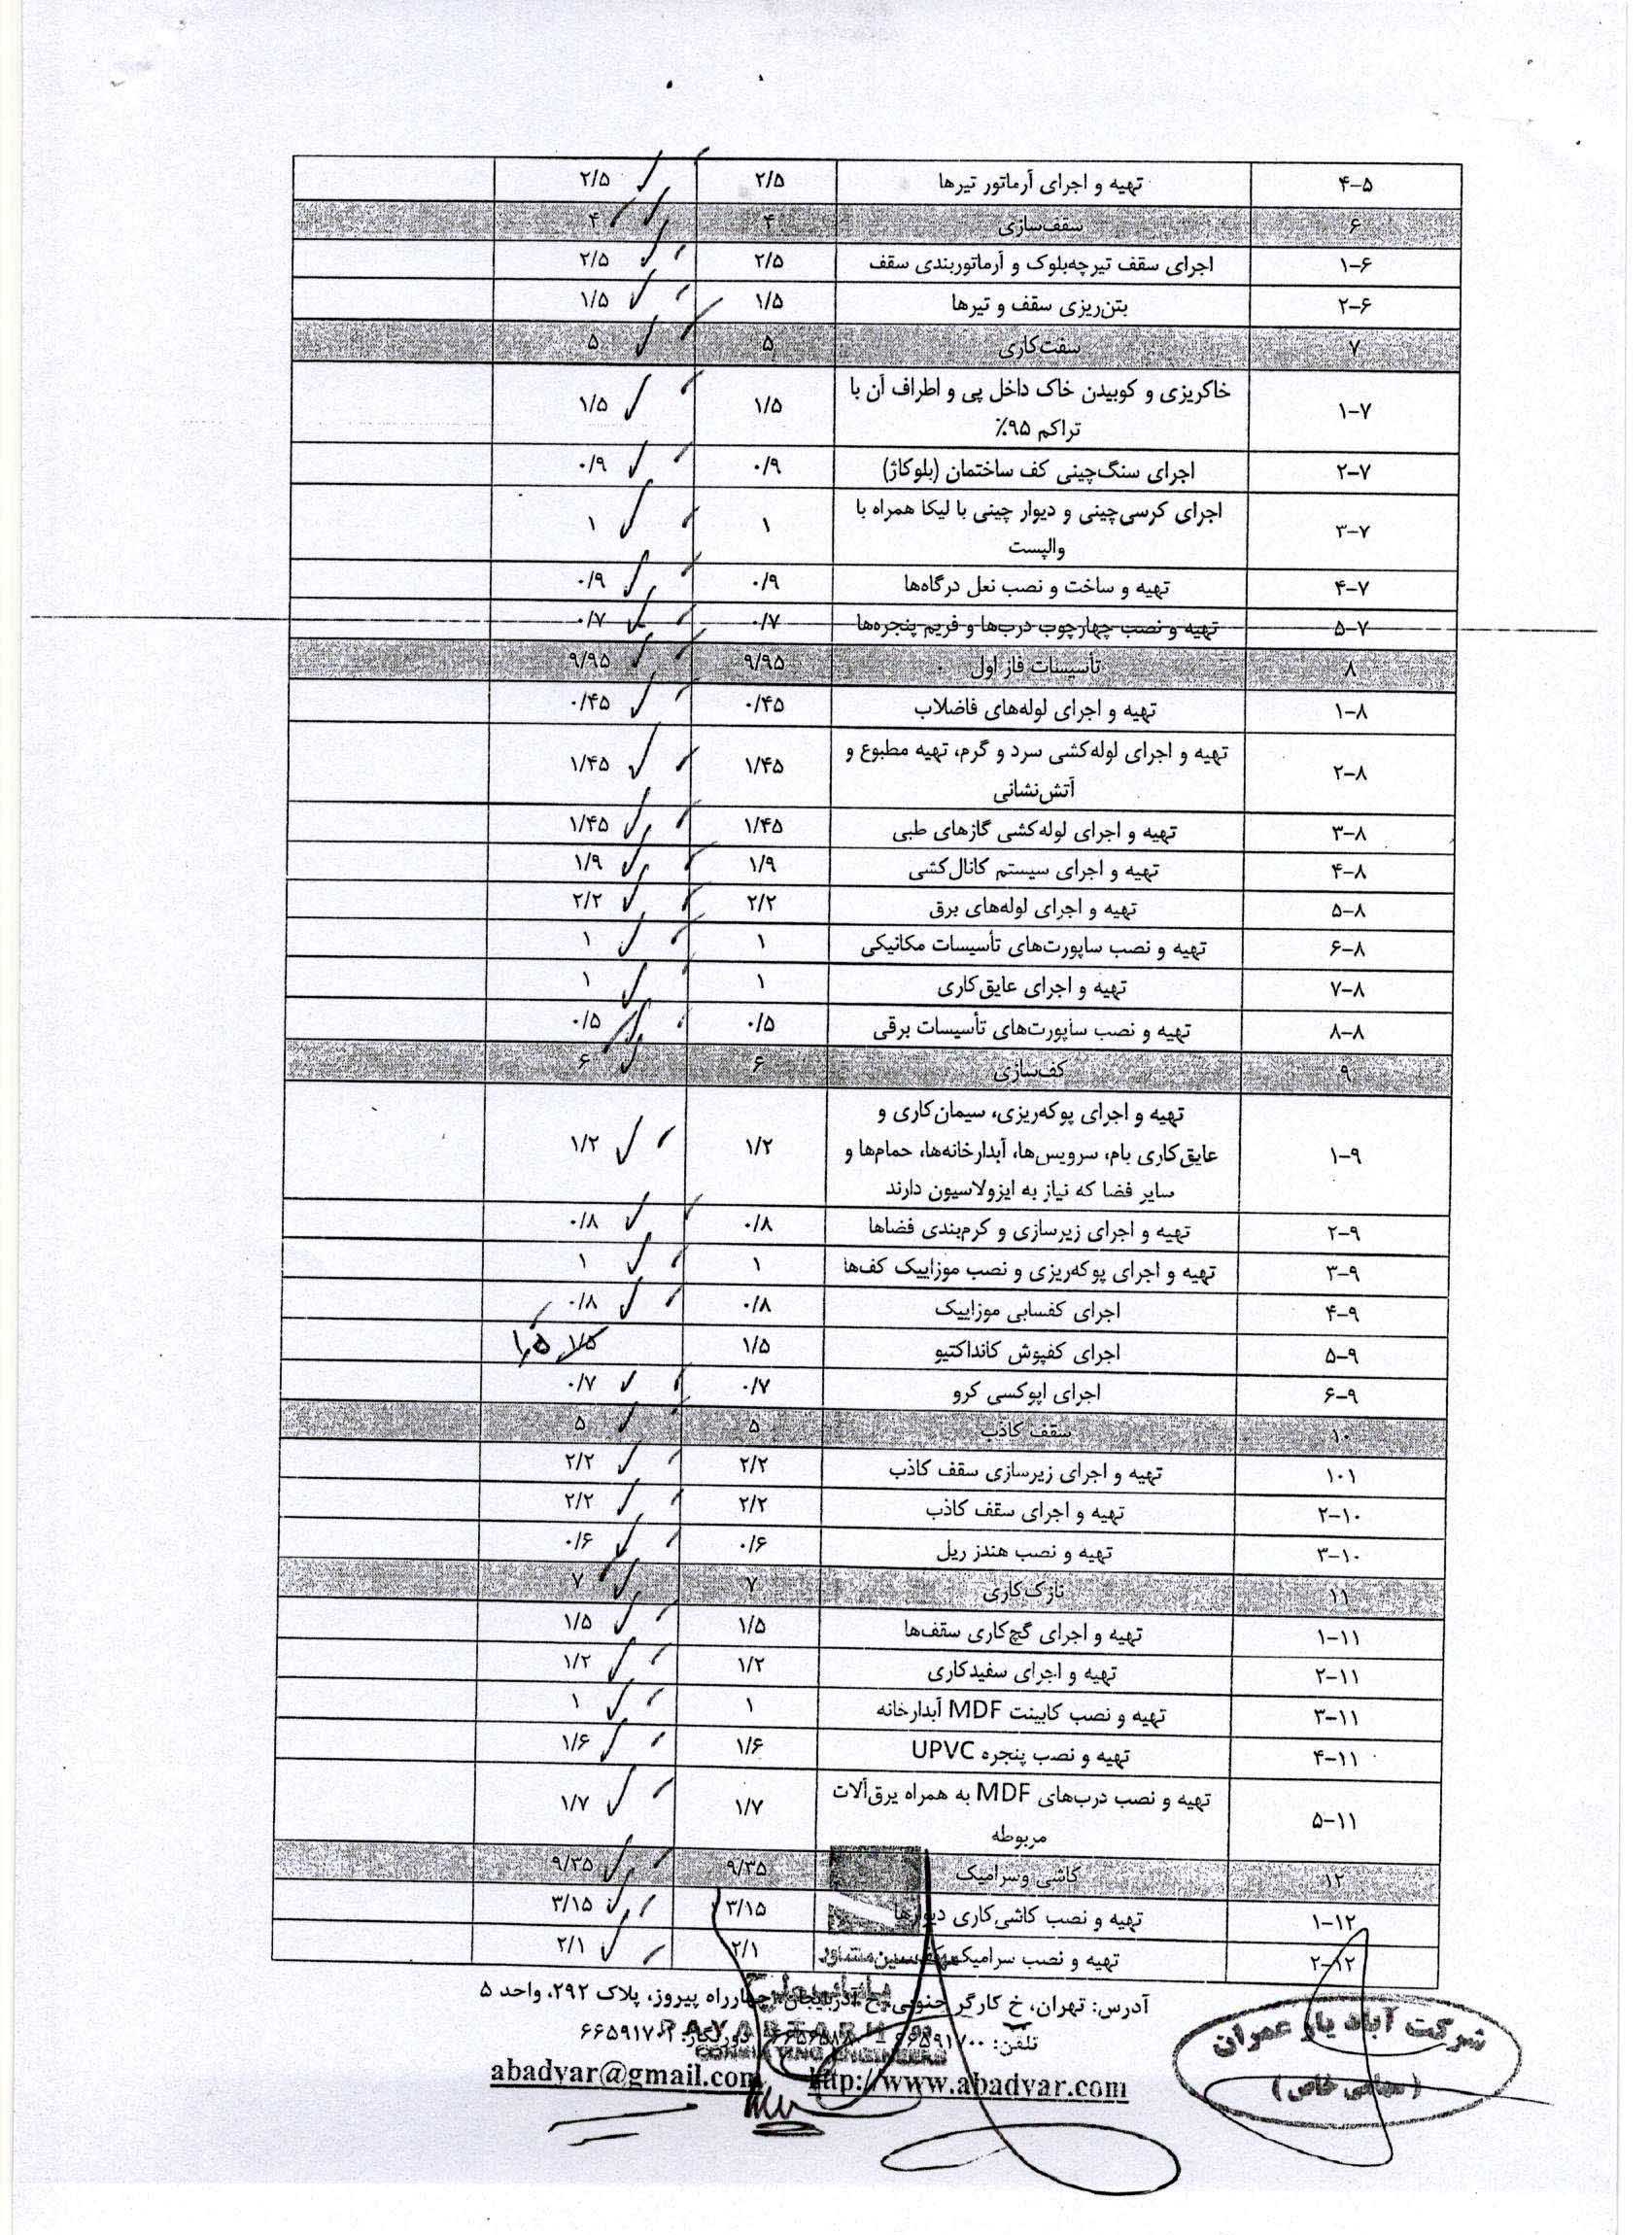 ۴-۵ تهیه و اجرای آرماتور تیرها ۲/۵ ۲/۵
۶ سقف‌سازی ۴ ۴
۱-۶ اجرای سقف تیرچه‌بلوک و آرماتوربندی سقف ۲/۵ ۲/۵
۲-۶ بتن‌ریزی سقف و تیرها ۱/۵ ۱/۵
۷ سفت‌کاری ۵ ۵
۱-۷ خاکریزی و کوبیدن خاک داخل پی و اطراف آن با ۱/۵ ۱/۵
تراکم ۹۵٪
۲-۷ اجرای سنگ‌چینی کف ساختمان (بلوکاژ) ۰/۹ ۰/۹
۳-۷ اجرای کرسی‌چینی و دیوار چینی با لیکا همراه با ۱ ۱
والپست
۴-۷ تهیه و ساخت و نصب نعل درگاه‌ها ۰/۹ ۰/۹
۵-۷ تهیه و نصب چهارچوب درب‌ها و فریم پنجره‌ها ۰/۷ ۰/۷
۸ تأسیسات فاز اول ۹/۹۵ ۹/۹۵
۱-۸ تهیه و اجرای لوله‌های فاضلاب ۰/۴۵ ۰/۴۵
۲-۸ تهیه و اجرای لوله‌کشی سرد و گرم، تهیه مطبوع و ۱/۴۵ ۱/۴۵
آتش‌نشانی
۳-۸ تهیه و اجرای لوله‌کشی گازهای طبی ۱/۴۵ ۱/۴۵
۴-۸ تهیه و اجرای سیستم کانال‌کشی ۱/۹ ۱/۹
۵-۸ تهیه و اجرای لوله‌های برق ۲/۲ ۲/۲
۶-۸ تهیه و نصب ساپورت‌های تأسیسات مکانیکی ۱ ۱
۷-۸ تهیه و اجرای عایق‌کاری ۱ ۱
۸-۸ تهیه و نصب ساپورت‌های تأسیسات برقی ۰/۵ ۰/۵
۹ کف‌سازی ۶ ۶
تهیه و اجرای پوکه‌ریزی، سیمان‌کاری و
۱-۹ عایق‌کاری بام، سرویس‌ها، آبدارخانه‌ها، حمام‌ها و ۱/۲ ۱/۲
سایر فضا که نیاز به ایزولاسیون دارند
۲-۹ تهیه و اجرای زیرسازی و کرم‌بندی فضاها ۰/۸ ۰/۸
۳-۹ تهیه و اجرای پوکه‌ریزی و نصب موزاییک کف‌ها ۱ ۱
۴-۹ اجرای کفسابی موزاییک ۰/۸ ۰/۸
۵-۹ اجرای کفپوش کانداکتیو ۱/۵ ۱/۵ ۱٫۵
۶-۹ اجرای اپوکسی کرو ۰/۷ ۰/۷
۱۰ سقف کاذب ۵ ۵
۱۰۱ تهیه و اجرای زیرسازی سقف کاذب ۲/۲ ۲/۲
۲-۱۰ تهیه و اجرای سقف کاذب ۲/۲ ۲/۲
۳-۱۰ تهیه و نصب هندز ریل ۰/۶ ۰/۶
۱۱ نازک‌کاری ۷ ۷
۱-۱۱ تهیه و اجرای گچ‌کاری سقف‌ها ۱/۵ ۱/۵
۲-۱۱ تهیه و اجرای سفیدکاری ۱/۲ ۱/۲
۳-۱۱ تهیه و نصب کابینت MDF آبدارخانه ۱ ۱
۴-۱۱ تهیه و نصب پنجره UPVC ۱/۶ ۱/۶
۵-۱۱ تهیه و نصب درب‌های MDF به همراه یرق‌آلات ۱/۷ ۱/۷
مربوطه
۱۲ کاشی وسرامیک ۹/۳۵ ۹/۳۵
۱-۱۲ تهیه و نصب کاشی‌کاری دیوارها ۳/۱۵ ۳/۱۵
۲-۱۲ تهیه و نصب سرامیک ۲/۱ ۲/۱
مهندسین مشاور
آدرس: تهران، خ کارگر جنوبی، خ آذربایجان، چهارراه پیروز، پلاک ۲۹۲، واحد ۵
تلفن: ۶۶۵۹۱۷۰۰ دورنگار: ۶۶۵۹۱۷۰۲
CONSULTING ENGINEERS
abadyar@gmail.com http://www.abadyar.com
شرکت آباد یار عمران
(سهامی خاص)